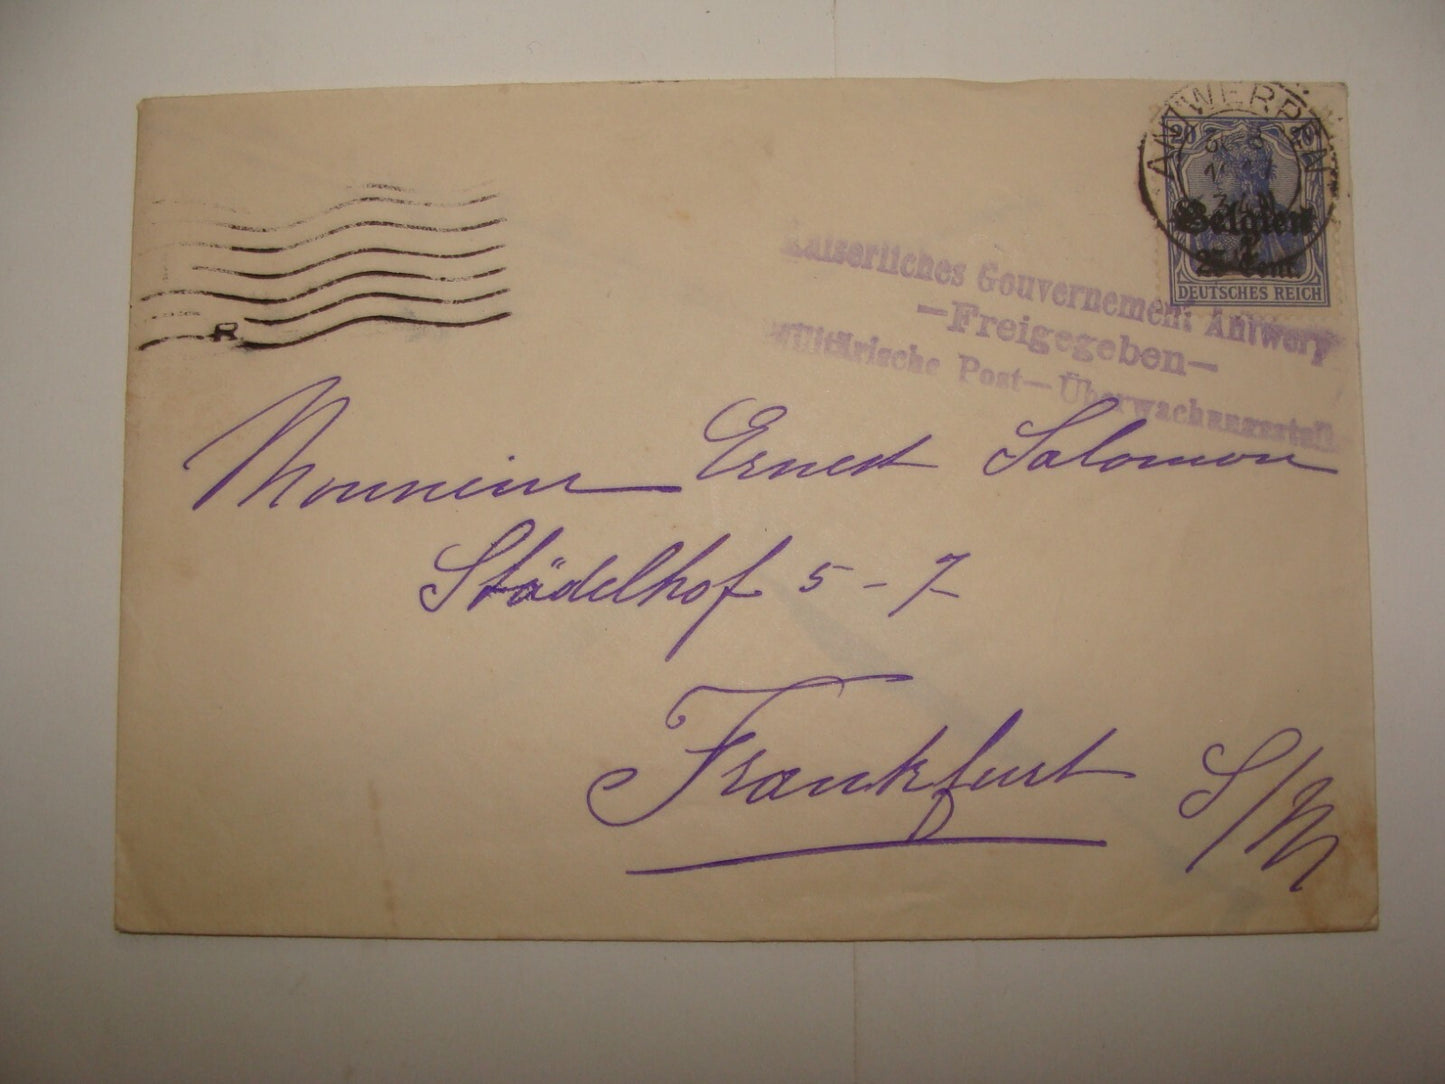 ANTWERPEN
20 20
Belgien
25 Cent.
DEUTSCHES REICH
Kaiserliches Gouvernement Antwerp
—Freigegeben—
Militärische Post—Überwachungsstelle
R
Monsieur Ernest Salomon
Städelhof 5 - 7
Frankfurt S/M